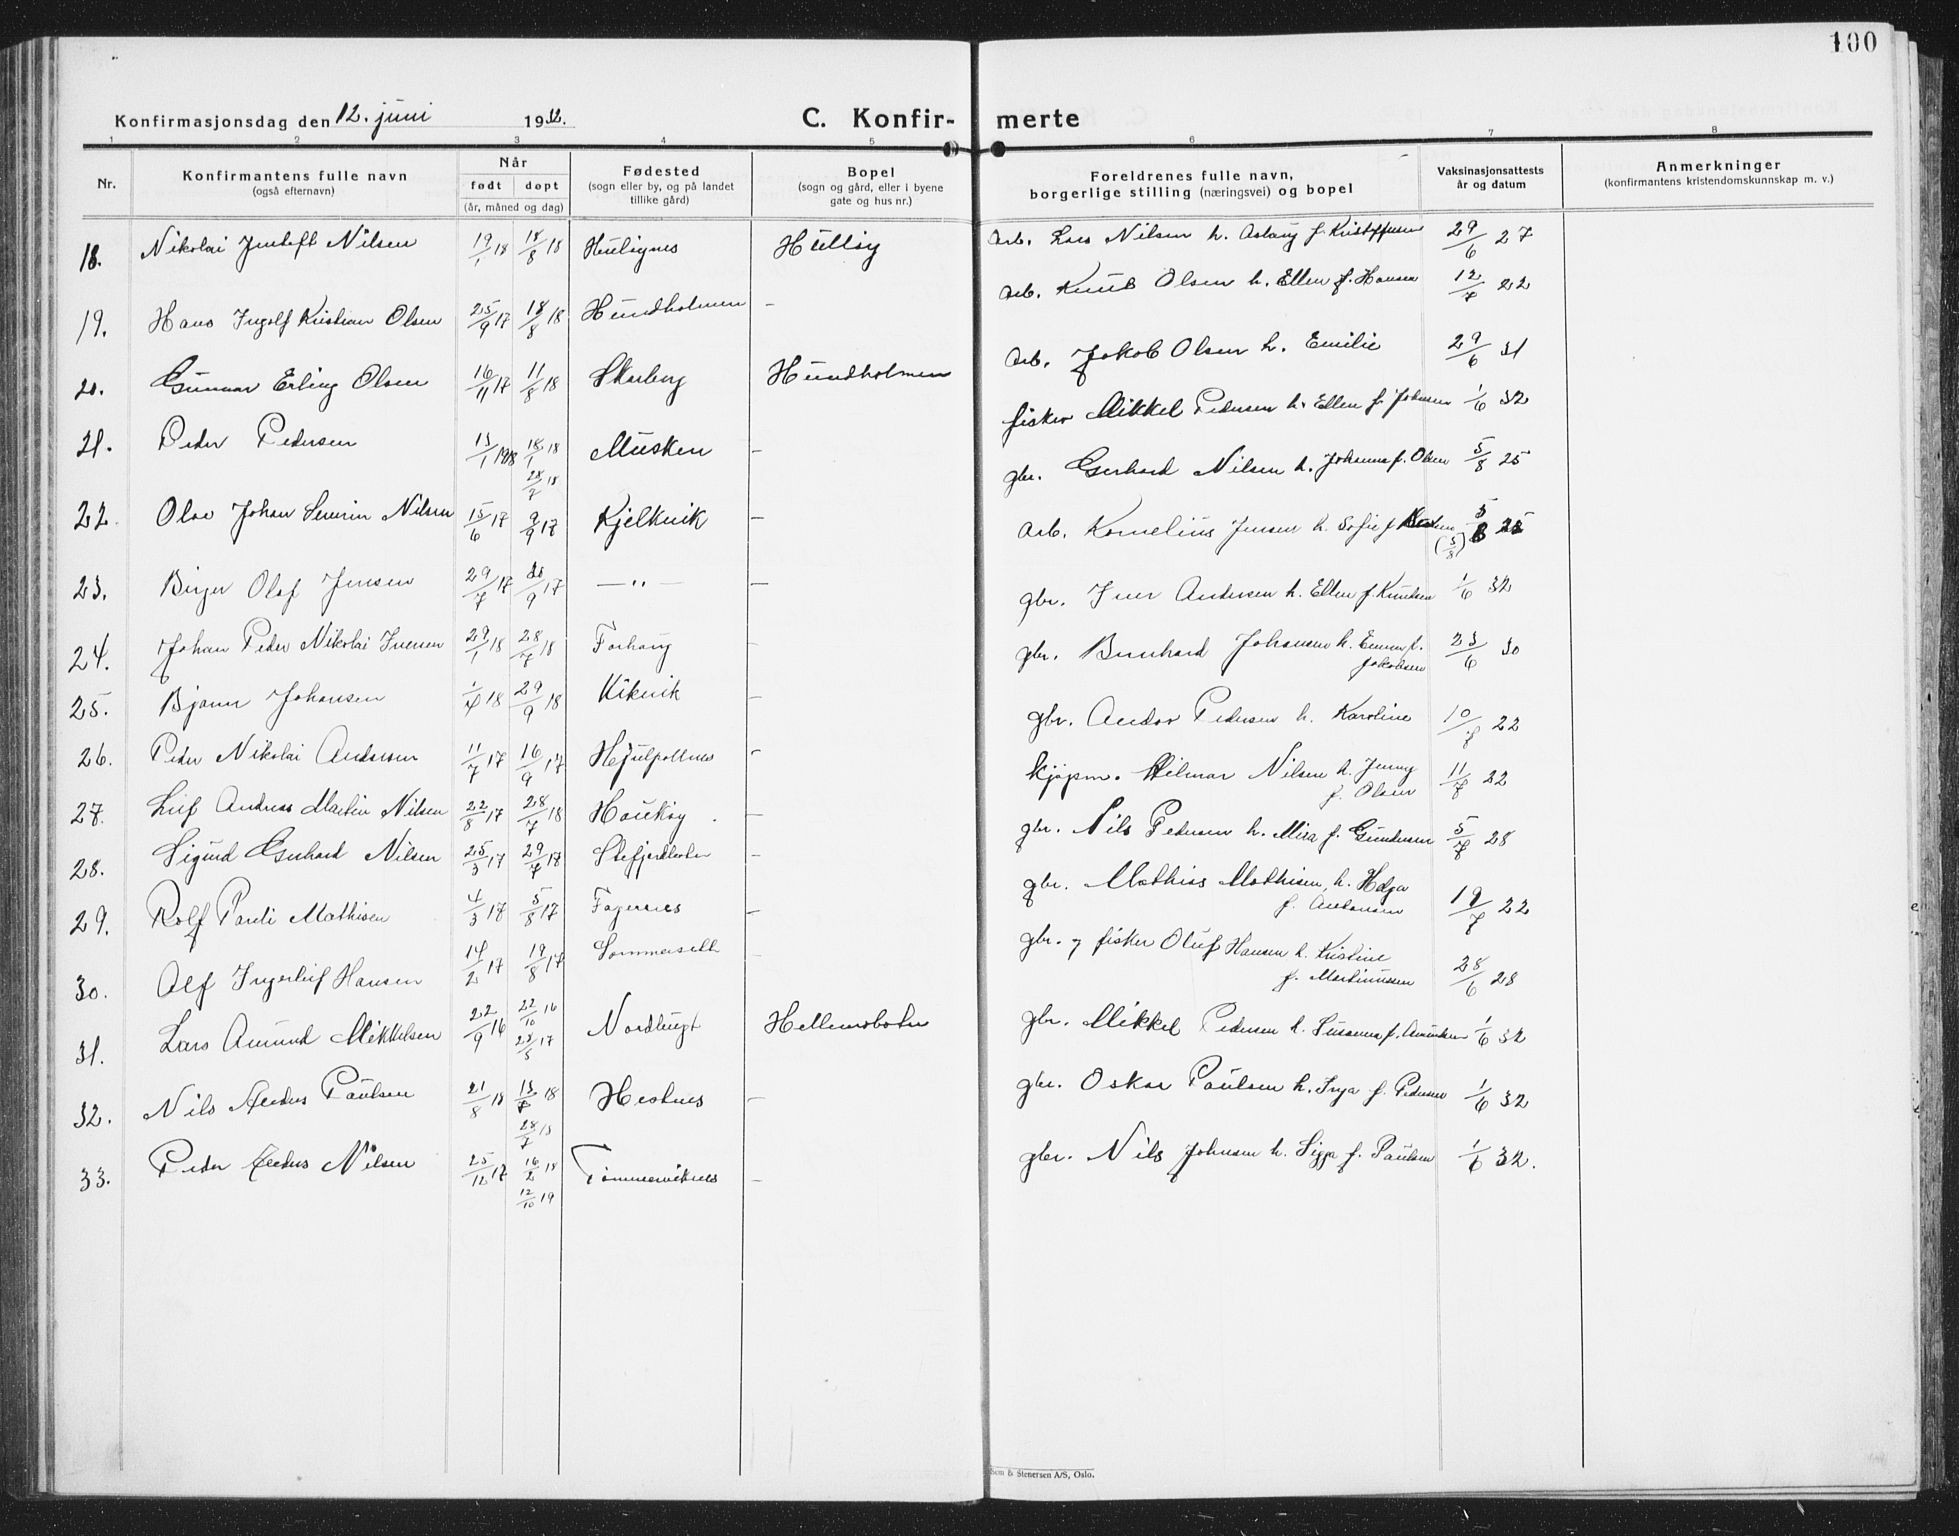 100
Konfirmasjonsdag den 12. juni 1932.
C. Konfir- merte
1 2 3 4 5 6 7 8
Nr.
Konfirmantens fulle navn
(også efternavn)
Når
født døpt
(år, måned og dag)
Fødested
(sogn eller by, og på landet
tillike gård)
Bopel
(sogn og gård, eller i byene
gate og hus nr.)
Foreldrenes fulle navn,
borgerlige stilling (næringsvei) og bopel
Vaksinasjonsattests
år og datum
Anmerkninger
(konfirmantens kristendomskunnskap m. v.)
18. Nikolai Nilsen 19/1 18 18/8 18 Arb. Lars Nilsen h. Aslaug f. Kristoffersen 29/6 27
19. Hans Ingolf Kristian Olsen 25/9 17 18/8 18 Hundholmen — Arb. Knut Olsen h. Ellen f. Hansen 12/7 22
20. Gunnar Erling Olsen 16/11 17 11/8 18 Skarberg Hundholmen Arb. Jakob Olsen h. Emilie 29/6 31
21. Peder Pedersen 13/1 1918 18/1 18 28/7 18 Musken — fisker Mikkel Pedersen h. Ellen f. Johnsen 1/6 32
22. Olav Johan Severin Nilsen 15/6 17 9/9 17 Kjelkvik — gbr. Gerhard Nilsen h. Johanna f. Olsen 5/8 25
23. Birger Olaf Jensen 29/7 17 30/9 17 — " — — Arb. Kornelius Jensen h. Sofie f. 5/8 25 (5/8)
24. Johan Peder Nikolai Iversen 29/1 18 28/7 18 Forhaug — gbr. Iver Andersen h. Ellen f. Knudsen 1/6 32
25. Bjarne Johansen 1/4 18 29/9 18 Kikvik — gbr. Bernhard Johansen h. Emma f. Jakobsen 23/6 30
26. Peder Nikolai Andersen 11/7 17 16/9 17 Hjulpollnes — gbr. Andor Pedersen h. Karoline 10/7 22
27. Leif Andreas Martin Nilsen 22/8 17 28/7 18 Haukøy — kjøpm. Hilmar Nilsen h. Jenny f. Olsen 11/7 22
28. Sigurd Gerhard Nilsen 25/3 17 29/7 17 Stefjordbotn — gbr. Nils Pedersen h. Mira f. Gundersen 5/7 28
29. Rolf Pauli Mathisen 4/3 17 5/8 17 Fagernes — gbr. Mathias Mathisen, h. Helga f. Andersen 19/7 22
30. Alf Ingeleif Hansen 14/2 17 19/8 17 Sommerseth — gbr. og fisker Oluf Hansen h. Kristine f. Martinussen 28/6 28
31. Lars Amund Mikkelsen 22/9 16 22/10 16 25/5 17 Nordbugt Hellemobotn gbr. Mikkel Pedersen h. Susanna f. Amundsen 1/6 32
32. Nils Paulsen 21/8 18 28/7 18 Hestnes — gbr. Oskar Paulsen h. Inga f. Pedersen 1/6 32
33. Peder Nilsen 25/12 17 16/2 18 12/10 19 Tømmerviknes — gbr. Nils Johnsen h. Sigga f. Paulsen 1/6 32.
& Stenersen A/S, Oslo.